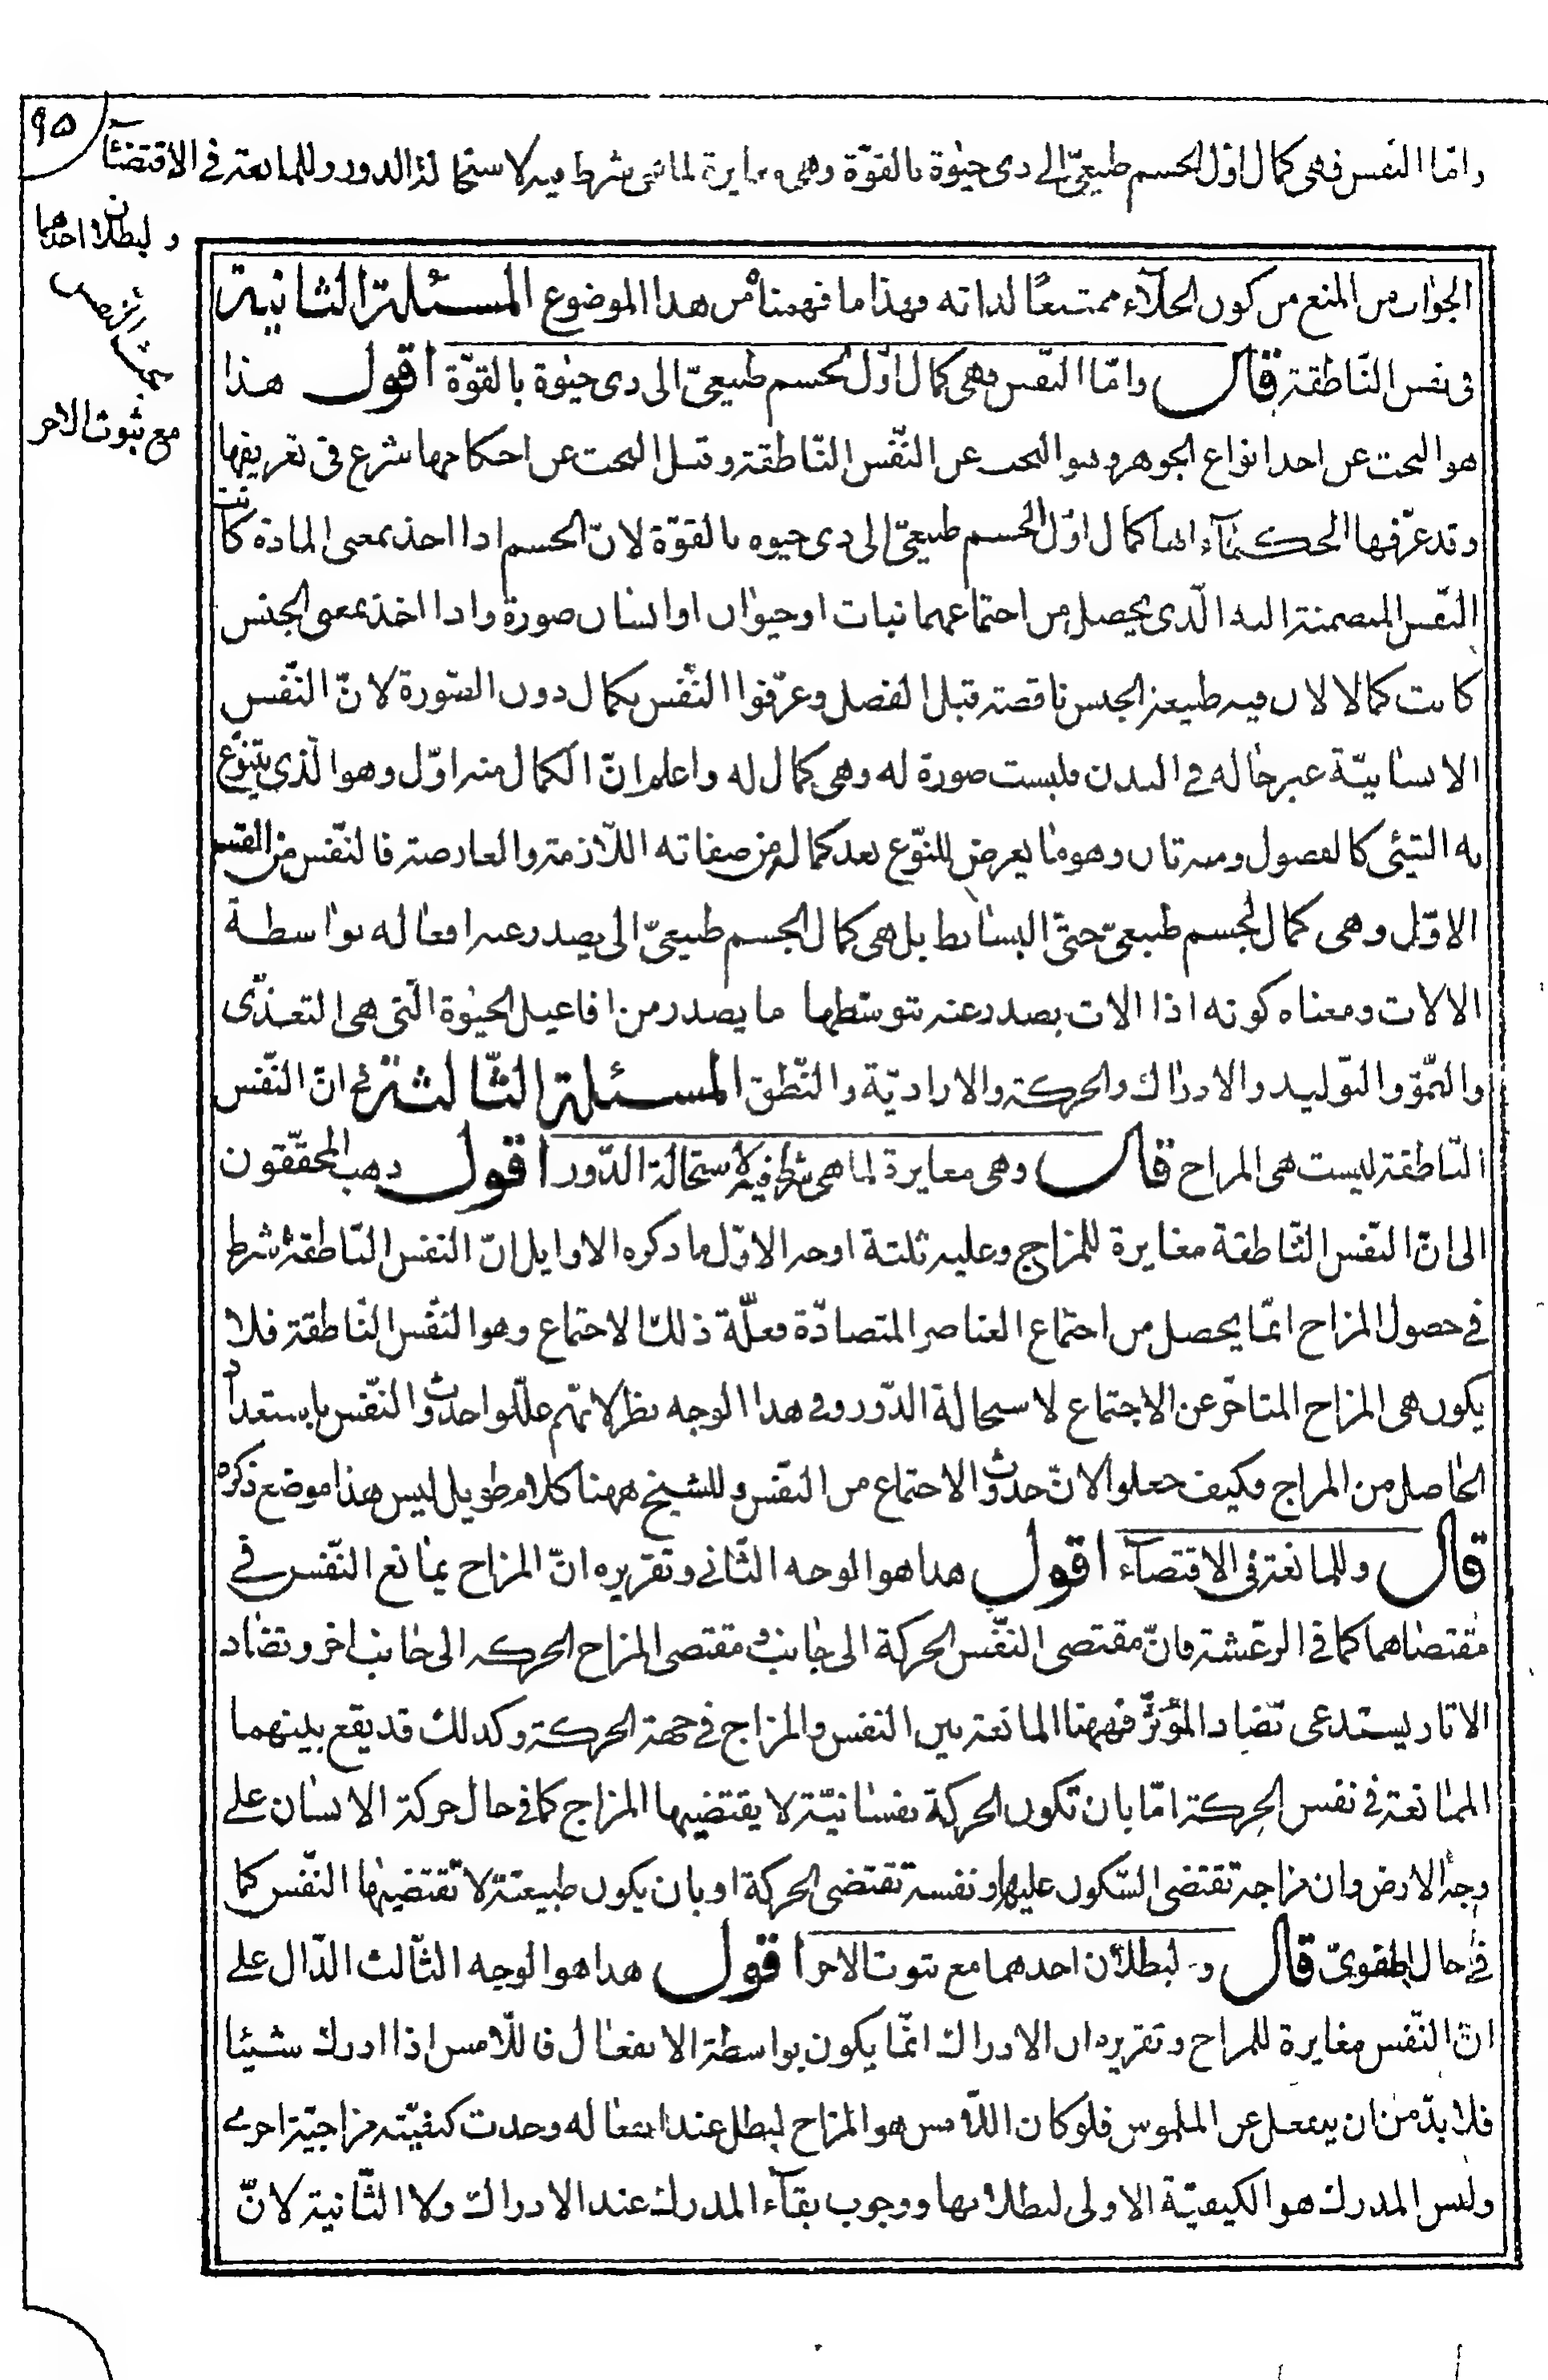 ٩٥
وامّا النّفس فهى كمال اوّل لجسم طبيعىّ الى ذى حيٰوة بالقوّة وهى مغايرة لما هى شرط فيه لاستحالة الدور وللممانعة فى الاقتضآء
و لبطلان احدهما
بحث النفس
مع ثبوت الاخر
الجواب من المنع من كون الخلآء ممتنعًا لذاته فهذا ما فهمناه من هذا الموضوع المسئلة الثانية
فى نفس النّاطقة قال وامّا النّفس فهى كمال اوّل لجسم طبيعىّ الى ذى حيٰوة بالقوّة اقول هذا
هو البحث عن احد انواع الجوهر وهو البحث عن النّفس النّاطقة وقبل البحث عن احكامها شرع فى تعريفها
وقد عرّفها الحكمآء انها كمال اوّل لجسم طبيعىّ الى ذى حيوه بالقوّة لانّ الجسم اذا اخذ بمعنى المادة كانت
النّفس المنضمنة اليه الّذى يحصل من اجتماعهما نبات او حيوٰان او انسان صورة واذا اخذ بمعنى الجنس
كانت كمالا لان فيه طبيعة الجنس ناقصة قبل الفصل وعرّفوا النّفس بكمال دون الصّورة لانّ النّفس
الانسٰانيّة غير حٰالّه فى البدن فليست صورة له وهى كمال له واعلم انّ الكمال منه اوّل وهو الّذى يتنوّع
به الشّئى كالفصول ومنه ثان وهو مٰا يعرض للنّوع بعد كماله من صفاته اللّازمة والعارضة فالنّفس من القسم
الاوّل وهى كمال لجسم طبيعىّ حتىّ البسٰائط بل هى كمال لجسم طبيعىّ الى يصدر عنه افعاله بوٰاسطة
الالات ومعناه كونه اذا الات يصدر عنه بتوسّطها ما يصدر من افاعيل الحيٰوة الّتى هى التغذّى
والنّموّ والتوّليد والادرٰاك والحركة والاراديّة والنّطق المسئلة الثّالثة فى انّ النّفس
النّاطقة ليست هى المزاج قال وهى مغايرة لما هى شرط فيه لاستحالة الدّور اقول ذهب المحقّقون
الى انّ النّفس النّاطقة مغايرة للمزاج وعليه ثلثة اوجه الاوّل ما ذكره الاوايل انّ النفس النّاطقة شرط
فى حصول المزاج انّما يحصل من اجتماع العناصر المتضادّة فعلّة ذلك الاجتماع وهو النّفس النّاطقة فلا
يكون هى المزاج المتاخّر عن الاجتماع لاستحالة الدّور وفى هذا الوجه نظر لانّهم علّلوا حدوث النّفس باستعداد
الحٰاصل من المزاج فكيف جعلوا الان حدوث الاجتماع من النّفس وللشيخ ههنا كلام طويل ليس هذا موضع ذكره
قال وللممانعة فى الاقتضآء اقول هذا هو الوجه الثّانى وتقريره انّ المزاج يمٰانع النّفس فى
مقتضٰاهما كما فى الرعشة فانّ مقتضى النّفس الحركة الى جٰانب ومقتضى المزاح الحركه الى جانب اخر وتضٰاد
الاثار يستدعى تضاد المؤثّر فههنا الممانعة بين النفس والمزاج فى جهة الحركة وكذلك قد يقع بينهما
الممٰانعة فى نفس الحركة امّا بان تكون الحركة نفسٰانيّة لا يقتضيها المزاج كما فى حال حركة الانسٰان على
وجه الارض فان مزاجه تقتضى السّكون عليها ونفسه تقتضى الحركة او بان يكون طبيعيّة لا تقتضيهٰا النّفس كما
فى حال الهوىّ قال و لبطلان احدهما مع ثبوت الاخر اقول هذا هو الوجه الثّالث الدّال على
انّ النّفس مغايرة للمزاح وتقريره ان الادراك انّما يكون بواسطة الانفعٰال فاللّامس اذا ادرك شيئا
فلا بدّ من ان ينفعل عن الملموس فلو كان اللّامس هو المزاح لبطل عند انفعٰاله وحدث كيفيّة مزاجيّة اخرى
وليس المدرك هو الكيفيّة الاولى لبطلانها ووجوب بقآء المدرك عند الادراك ولا الثّانية لانّ